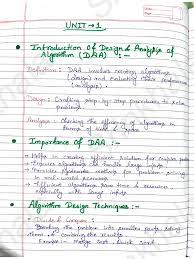 UNIT → 1
• Introduction Of Design & Analysis of
Algorithm (DAA) :-
Definition : DAA involves creating algorithms
(design) and evaluating their performance
(analysis)
Design : Creating step-by-step procedures to solve
problems
Analysis : Checking the efficiency of algorithms in
terms of time & space
• Importance of DAA :-
Helps in creating efficient solution for complex
algorithms
Provides systematic methods for problem-solving
in real-world scenarios
Efficient algorithms save time & resources
especially with large inputs
• Algorithm Design Techniques :-
Divide & Conquer :
Breaking the problem into smaller parts, solving
the results
Example :- Merge Sort, Quick Sort